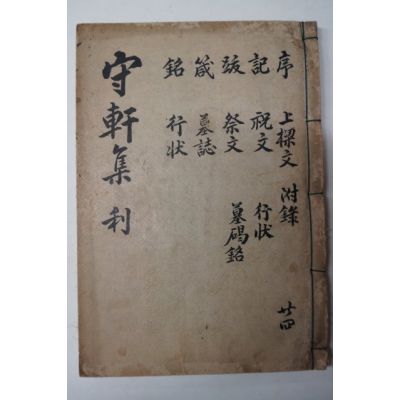 序 上樑文 附錄
廿四
記 祝文 行状
跋 祭文 墓碣銘
箴 墓誌
銘 行状
守軒集 利